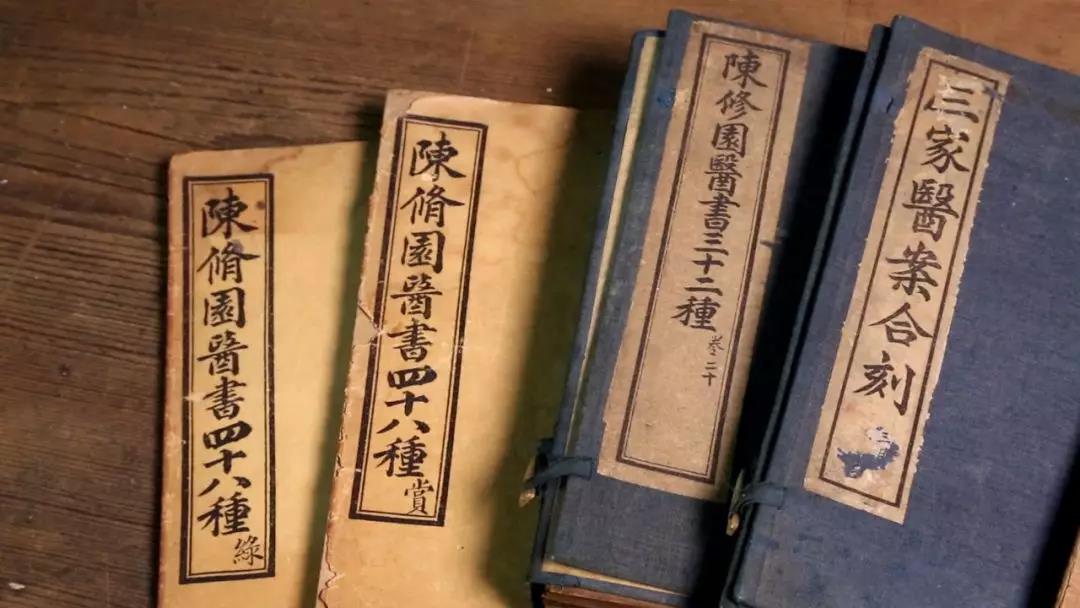 陳脩園醫書四十八種
綠
陳脩園醫書四十八種
賞
陳修園醫書三十二種
卷二十
三家醫案合刻